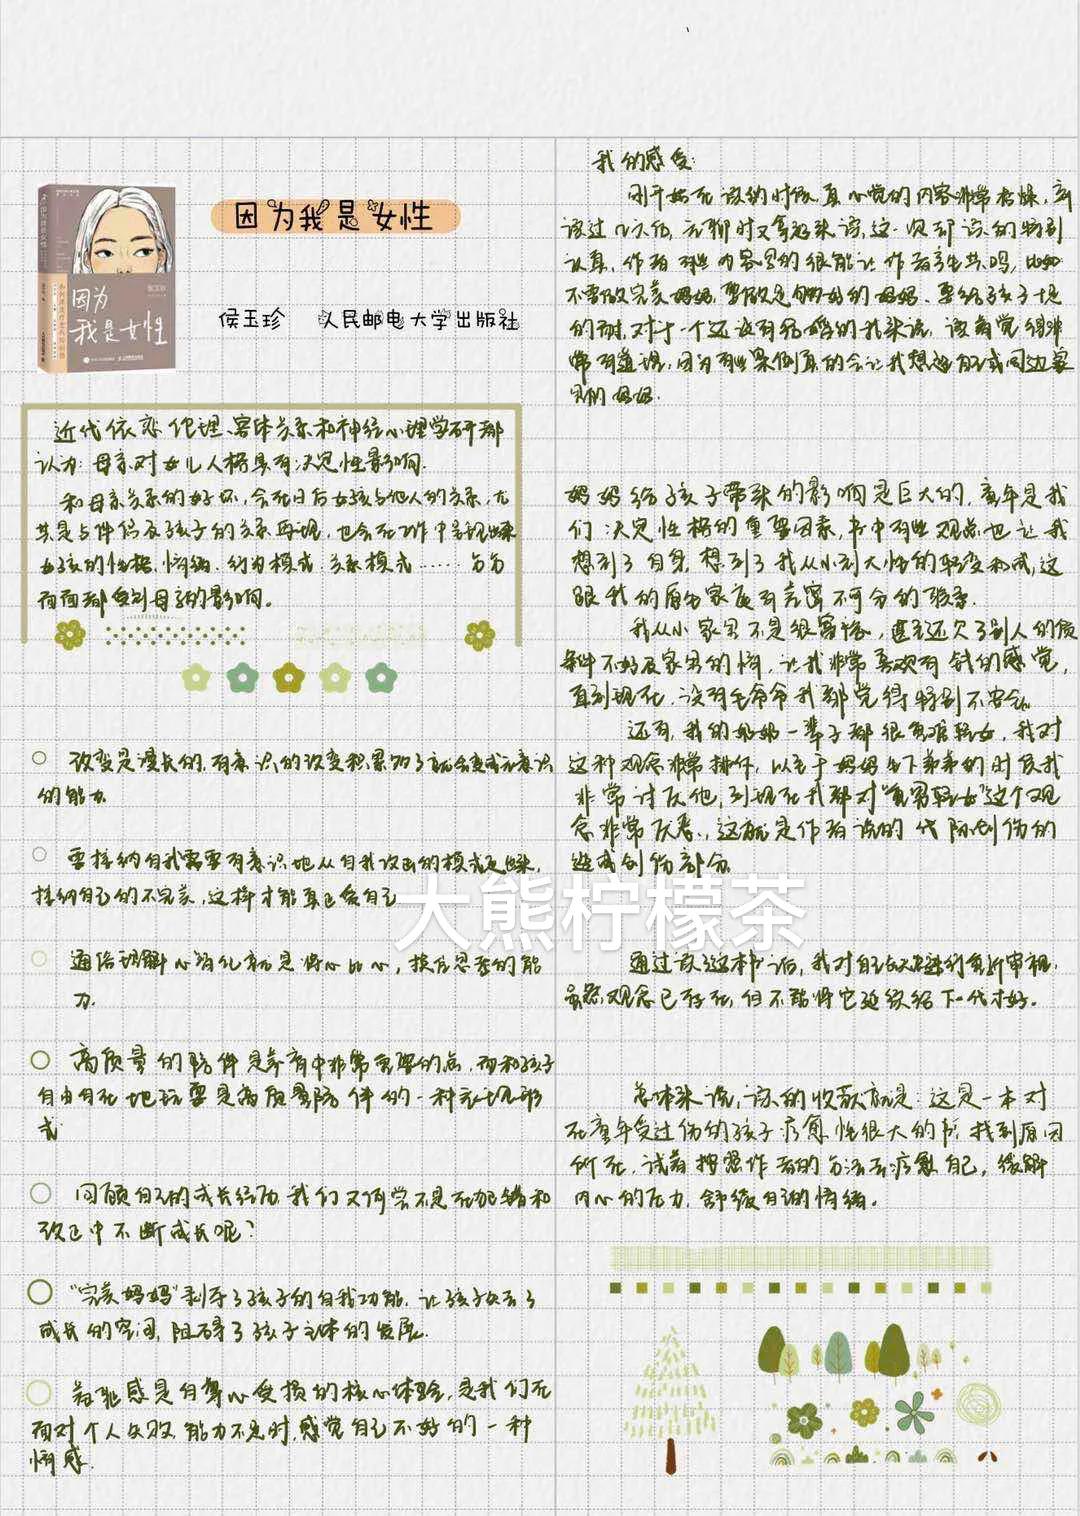 因为我是女性
侯玉珍 人民邮电大学出版社
因为
我是女性
近代依恋伦理、客体关系和神经心理学研都
认为:母亲对女儿人格具有决定性影响.
和母亲关系的好坏,会在日后女孩与他人的关系,尤
其是与伴侣及孩子的关系再现,也会在工作中呈现出来
女孩的性格、情绪、行为模式、关系模式……方方
面面都受到母亲的影响。
改变是漫长的,有意识的改变积累够了就会变成无意识
的能力.
要接纳自我需要有意识地从自我攻击的模式走出来,
接纳自己的不完美,这样才能真正爱自己
通俗理解心智化就是将心比心,换位思考的能
力.
高质量的陪伴是养育中非常重要的点,而和孩子
自由自在地玩耍是高质量陪伴的一种表现形
式.
回顾自己的成长经历,我们又何尝不是在犯错和
改正中不断成长呢?
"完美妈妈"剥夺了孩子的自我功能,让孩子失去了
成长的空间,阻碍了孩子主体的发展.
羞耻感是自尊心受损的核心体验,是我们在
面对个人失败,能力不足时,感觉自己不好的一种
情感.
我的感受:
刚开始在读的时候,真心觉的内容非常枯燥,
读过几天后,无聊时又拿起来读,这一次却读的特别
认真,作者有些内容写的很能让作者产生共鸣,比如
不要做完美妈妈,要做足够好的妈妈、要给孩子
的对于一个还没有结婚的我来说,读着觉得非
常有道理,因为有些案例真的会让我想起自己或周边
的妈妈.
妈妈给孩子带来的影响是巨大的,童年是我
们决定性格的重要因素,书中有些观点也让我
想到了自身,想到了我从小到大性的转变和成,这
跟我的原生家庭有着密不可分的联系.
我从小家里不是很富裕,甚至还欠了别人的债
条件不好及家里的情,让我非常喜欢有钱的感觉,
直到现在,没有毛爷爷我都觉得特别不安全.
还有,我的奶奶一辈子都很重男轻女,我对
这种观念非常排斥,以至于妈妈生下弟弟的时候我
非常讨厌他,到现在我都对"重男轻女"这个观
念非常厌恶.,这就是作者说的代际创伤的
造成创伤部分.
大熊柠檬茶
通过读了这本书后,我对自己进行重新审视.
虽然,观念已存在,但不能将它延续给下一代才好。
总体来说,读的收获就是:这是一本对
在童年受过伤的孩子疗愈性很大的书,找到原因
所在,试着按照作者的方法去疗愈自己,缓解
内心的压力,舒缓自己的情绪。